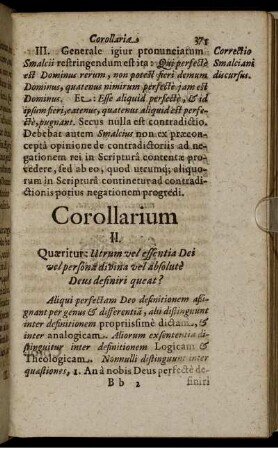 Corollaria. 375
III. Generale igiur pronunciatum Correctio
Smalcii restringendum est ita: Qui perfectè Smalciani
est Dominus rerum, non potest fieri demum discursus.
Dominus, quatenus nimirum perfectè jam est
Dominus. Et: Esse aliquid perfectè, & id
ipsum fieri, eatenus, quatenus aliquid est perfe-
ctè, pugnant. Secus nulla est contradictio.
Debebat autem Smalcius non ex præconce-
ptâ opinione de contradictoriis ad negatio-
nem rei in Scripturâ contentæ pro-
cedere, sed ab eo, quod utcunq; aliquo-
rum in Scripturâ continetur ad contradi-
ctionis potius negationem progredi.
Corollarium
II.
Quæritur: Utrum vel essentia Dei
vel persona divina vel absolutè
Deus definiri queat?
Aliqui perfectam Deo definitionem assi-
gnant per genus & differentiâ, alii distinguunt
inter definitionem propriissimè dictam, &
inter analogicam. Aliorum exsententia di-
stinguitur inter definitionem Logicam &
Theologicam. Nonnulli distinguunt inter
quæstiones, 1. An à nobis Deus perfectè de-
B b 2 finiri